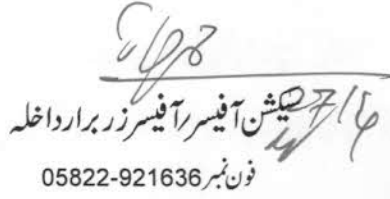 سیکشن آفیسر/آفیسرز ر برار داخلہ
فون نمبر 05822-921636